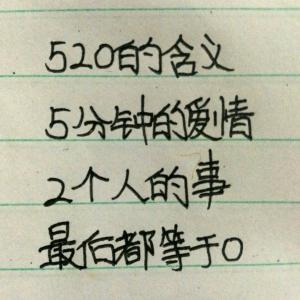 520的含义
5分钟的爱情
2个人的事
最后都等于0